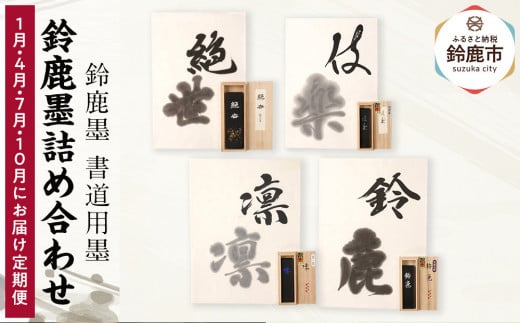 1月・4月・7月・10月にお届け定期便
鈴鹿墨詰め合わせ
鈴鹿墨 書道用墨
ふるさと納税
鈴鹿市
suzuka city
絶世
伎楽
凛凛
鈴鹿
絶世
鈴鹿